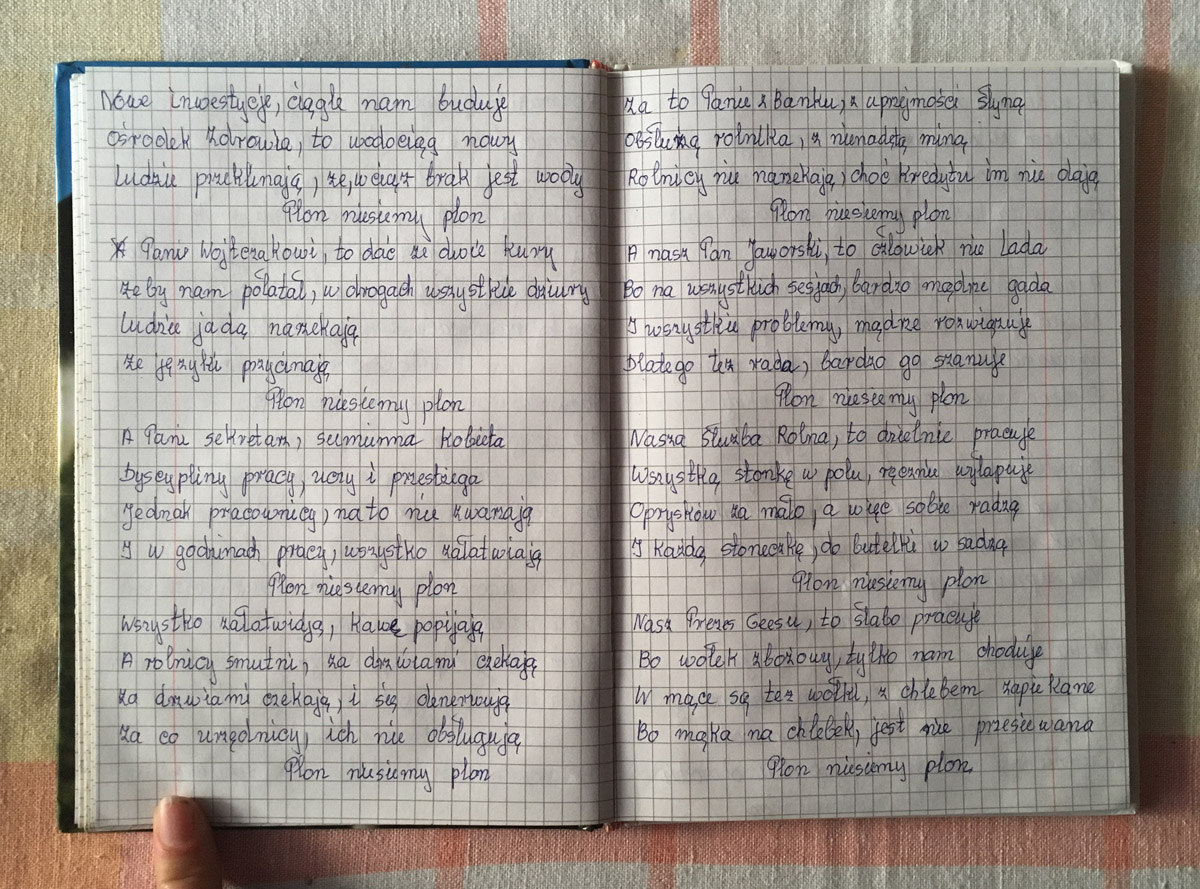 Nowe inwestycje, ciągle nam buduje
Ośrodek Zdrowia, to wodociąg nowy
Ludzie przeklinają, że, wciąż brak jest wody
Plon niesiemy plon
A Panu Wojtczakowi, to dać ze dwie kury
żeby nam połatał, w drogach wszystkie dziury
Ludzie jadą narzekają
że języki przycinają
Plon niesiemy plon
A Pani sekretarz, sumienna kobieta
Dyscypliny pracy, uczy i przestrzega
Jednak pracownicy, na to nie zważają
I w godzinach pracy, wszystko załatwiają
Plon niesiemy plon
Wszystko załatwiają, kawę popijają
A rolnicy smutni, za drzwiami czekają
za drzwiami czekają, i się denerwują
Za co urzędnicy, ich nie obsługują
Plon niesiemy plon
Za to Panie z Banku, z uprzejmości słyną
Obsłużą rolnika, z nienadętą miną
Rolnicy nie narzekają, choć kredytu im nie dają
Plon niesiemy plon
A nasz Pan Jaworski, to człowiek nie lada
Bo na wszystkich sesjach, bardzo mądrze gada
I wszystkie problemy, mądrze rozwiązuje
Dlatego też rada, bardzo go szanuje
Plon niesiemy plon
Nasza Służba Rolna, to dzielnie pracuje
Wszystką stonkę w polu, ręcznie wyłapuje
Oprysków za mało, a więc sobie radzą
I każdą stoneczkę, do butelki wsadzą
Plon niesiemy plon
Nasz Prezes Geesu, to słabo pracuje
Bo wołek zbożowy, tylko nam choduje
W mące są też wołki, z chlebem zapiekane
Bo mąka na chlebek, jest nie przesiewana
Plon niesiemy plon